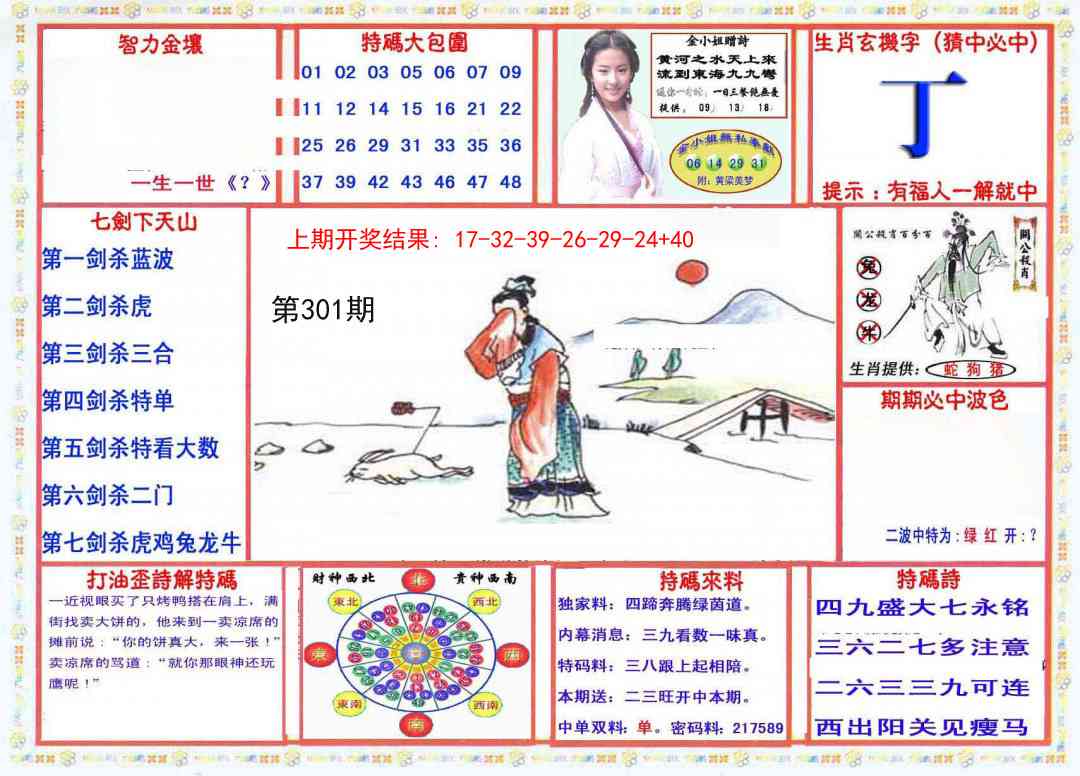 智力金壤
一生一世《？》
特碼大包圍
01 02 03 05 06 07 09
11 12 14 15 16 21 22
25 26 29 31 33 35 36
37 39 42 43 46 47 48
金小姐贈詩
黄河之水天上來
流到東海九九彎
一日三餐绝無憂
提供: 09: 13: 18:
金小姐無私奉獻
06 14 29 31
附: 黄梁美梦
生肖玄機字（猜中必中）
丁
提示：有福人一解就中
七劍下天山
第一剑杀蓝波
第二剑杀虎
第三剑杀三合
第四剑杀特单
第五剑杀特看大数
第六剑杀二门
第七剑杀虎鸡兔龙牛
上期开奖结果: 17-32-39-26-29-24+40
第301期
關公殺肖百分百
關公殺肖
兔
龙
牛
生肖提供: 蛇 狗 猪
期期必中波色
二波中特为: 绿 红 开: ?
打油歪詩解特碼
一近视眼买了只烤鸭搭在肩上，满
街找卖大饼的，他来到一卖凉席的
摊前说：“你的饼真大，来一张！”
卖凉席的骂道：“就你那眼神还玩
鹰呢！”
财神西北
貴神西南
北
東北
西北
東
西
東南
西南
南
持碼來料
独家料: 四蹄奔腾绿茵道。
内幕消息: 三九看数一味真。
特码料: 三八跟上起相陪。
本期送: 二三旺开中本期。
中单双料: 单。密码料: 217589
特碼詩
四九盛大七永铭
三六二七多注意
二六三三九可连
西出阳关见瘦马